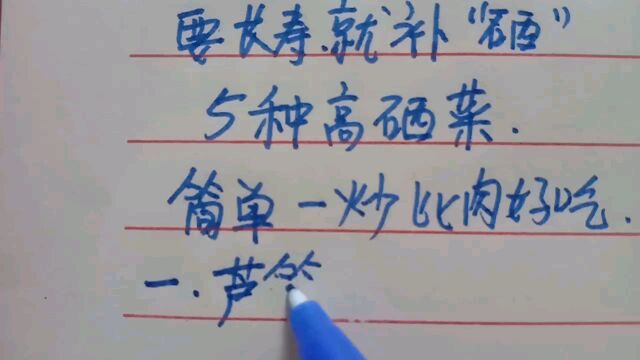 要长寿.就补“硒”
5种高硒菜.
简单一炒比肉好吃.
一.芦